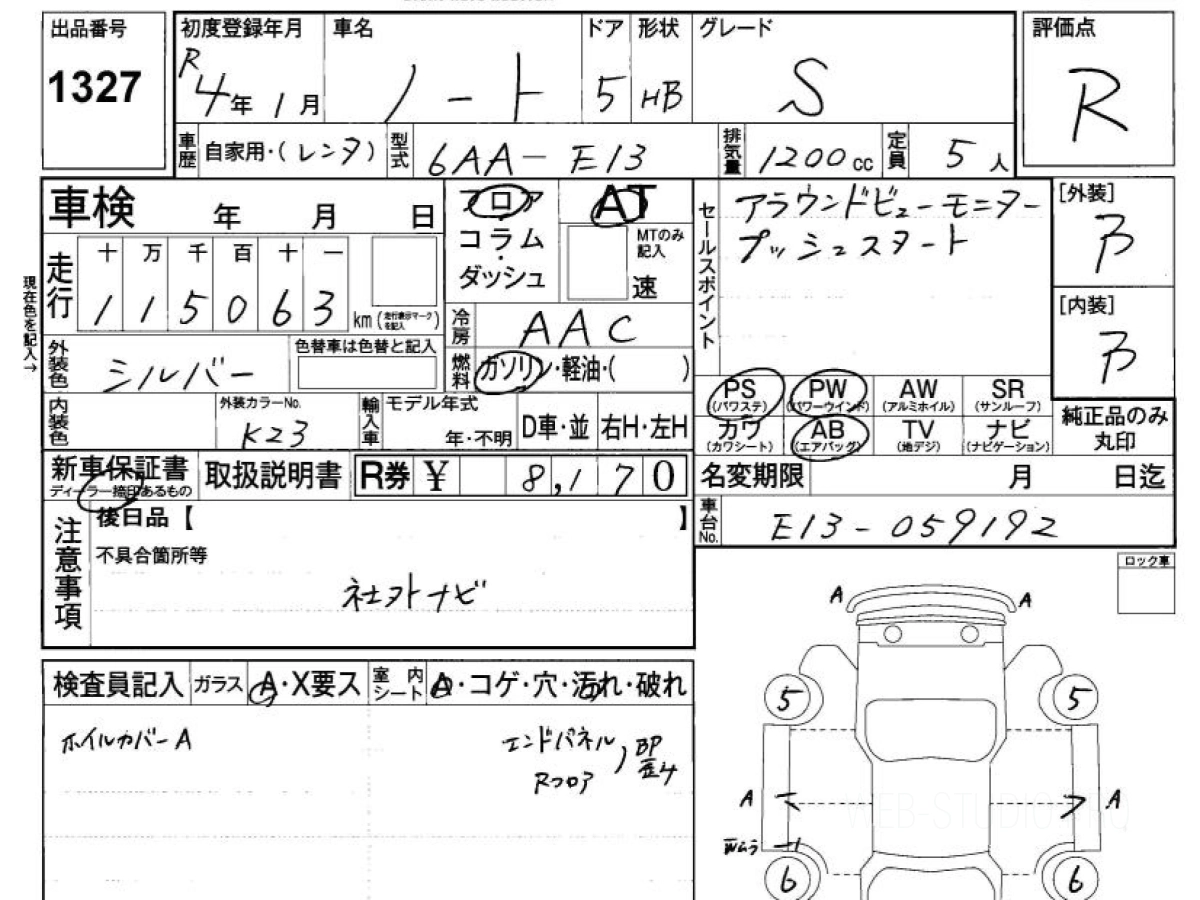 出品番号
1327
初度登録年月
R4年1月
車名
ノート
ドア
5
形状
HB
グレード
S
評価点
R
車歴
自家用・(レンタ)
型式
6AA-E13
排気量
1200cc
定員
5人
車検
年 月 日
現在色を記入→
走行
十 万 千 百 十 一
1 1 5 0 6 3
km(走行表示マークを記入)
フロア
コラム
・
ダッシュ
AT
MTのみ記入
速
冷房
AAC
燃料
ガソリン・軽油・( )
外装色
シルバー
色替車は色替と記入
内装色
外装カラーNo.
K23
輸入車
モデル年式
年・不明
D車・並
右H・左H
セールスポイント
アラウンドビューモニター
プッシュスタート
[外装]
[内装]
PS
(パワステ)
PW
(パワーウインド)
AW
(アルミホイル)
SR
(サンルーフ)
カワ
(カワシート)
AB
(エアバッグ)
TV
(地デジ)
ナビ
(ナビゲーション)
純正品のみ
丸印
新車保証書
ディーラー捺印あるもの
取扱説明書
R券
¥ 8,170
名変期限
月 日迄
車台No.
E13-059192
注意事項
後日品【 】
不具合箇所等
社外ナビ
ロック車
検査員記入
ガラス
A・X要ス
室内シート
A・コゲ・穴・汚れ・破れ
ホイルカバーA
エンドパネル,
Rフロア
BP
歪み
A
A
5
5
A
A
WEB-STUDIO
6
6